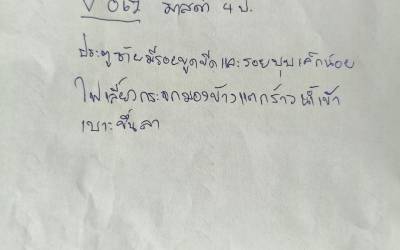 V 067 มาสด้า 4 ป.
ประตูซ้ายมีรอยขูดขีดและรอยบุบเล็กน้อย
ไฟเลี้ยวกระจกมองข้างแตกร้าวน้ำเข้า
เบาะขึ้นรา